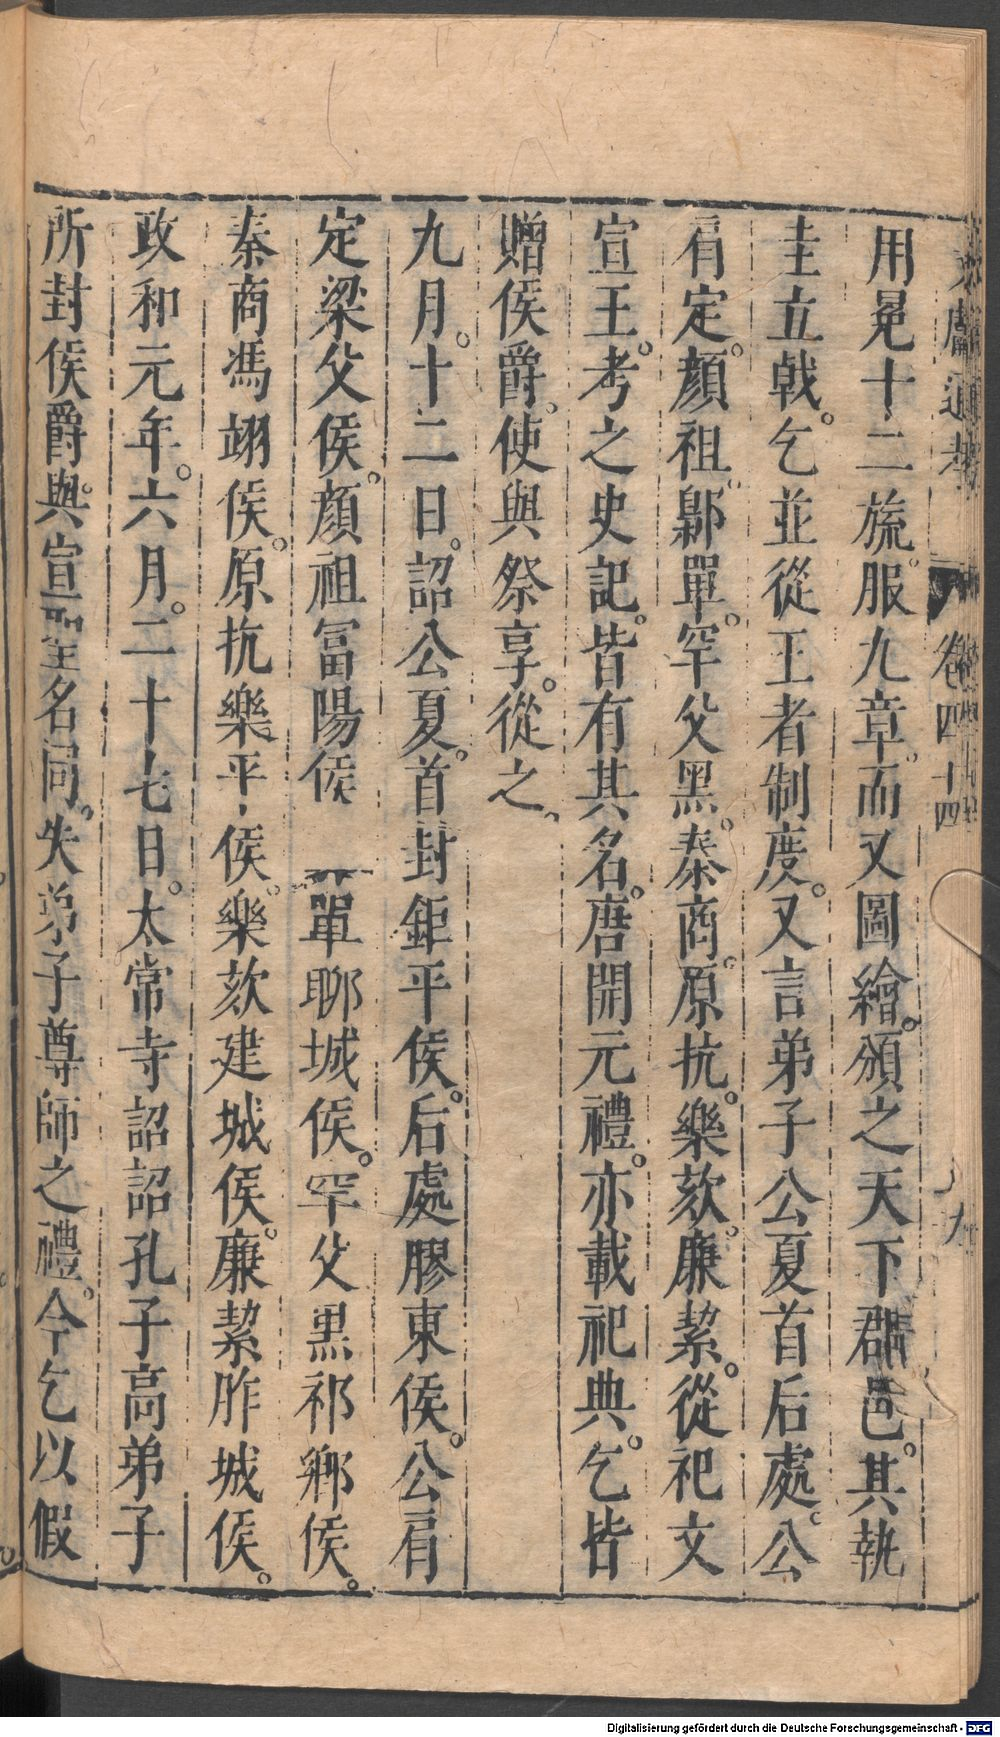 文獻通考 卷四十四
用冕十二旒。服九章。而又圖繪。頒之天下郡邑。其執
圭立戟。乞並從王者制度。又言弟子公夏首后處。公
肩定。顏祖。鄡單。罕父黑。秦商。原抗。樂欬。廉絜。從祀文
宣王。考之史記。皆有其名。唐開元禮。亦載祀典。乞皆
贈侯爵。使與祭享。從之、
九月。十二日。詔公夏。首封鉅平侯。后處膠東侯。公肩
定梁父侯。顏祖富陽侯 單聊城侯。罕父黑祁鄉侯。
秦商馮翊侯。原抗樂平侯。樂欬建城侯。廉絜胙城侯。
政和元年。六月。二十七日。太常寺詔詔孔子高弟子
所封侯爵。與宣聖名同。失弟子尊師之禮。今乞以假
Digitalisierung gefördert durch die Deutsche Forschungsgemeinschaft - DFG